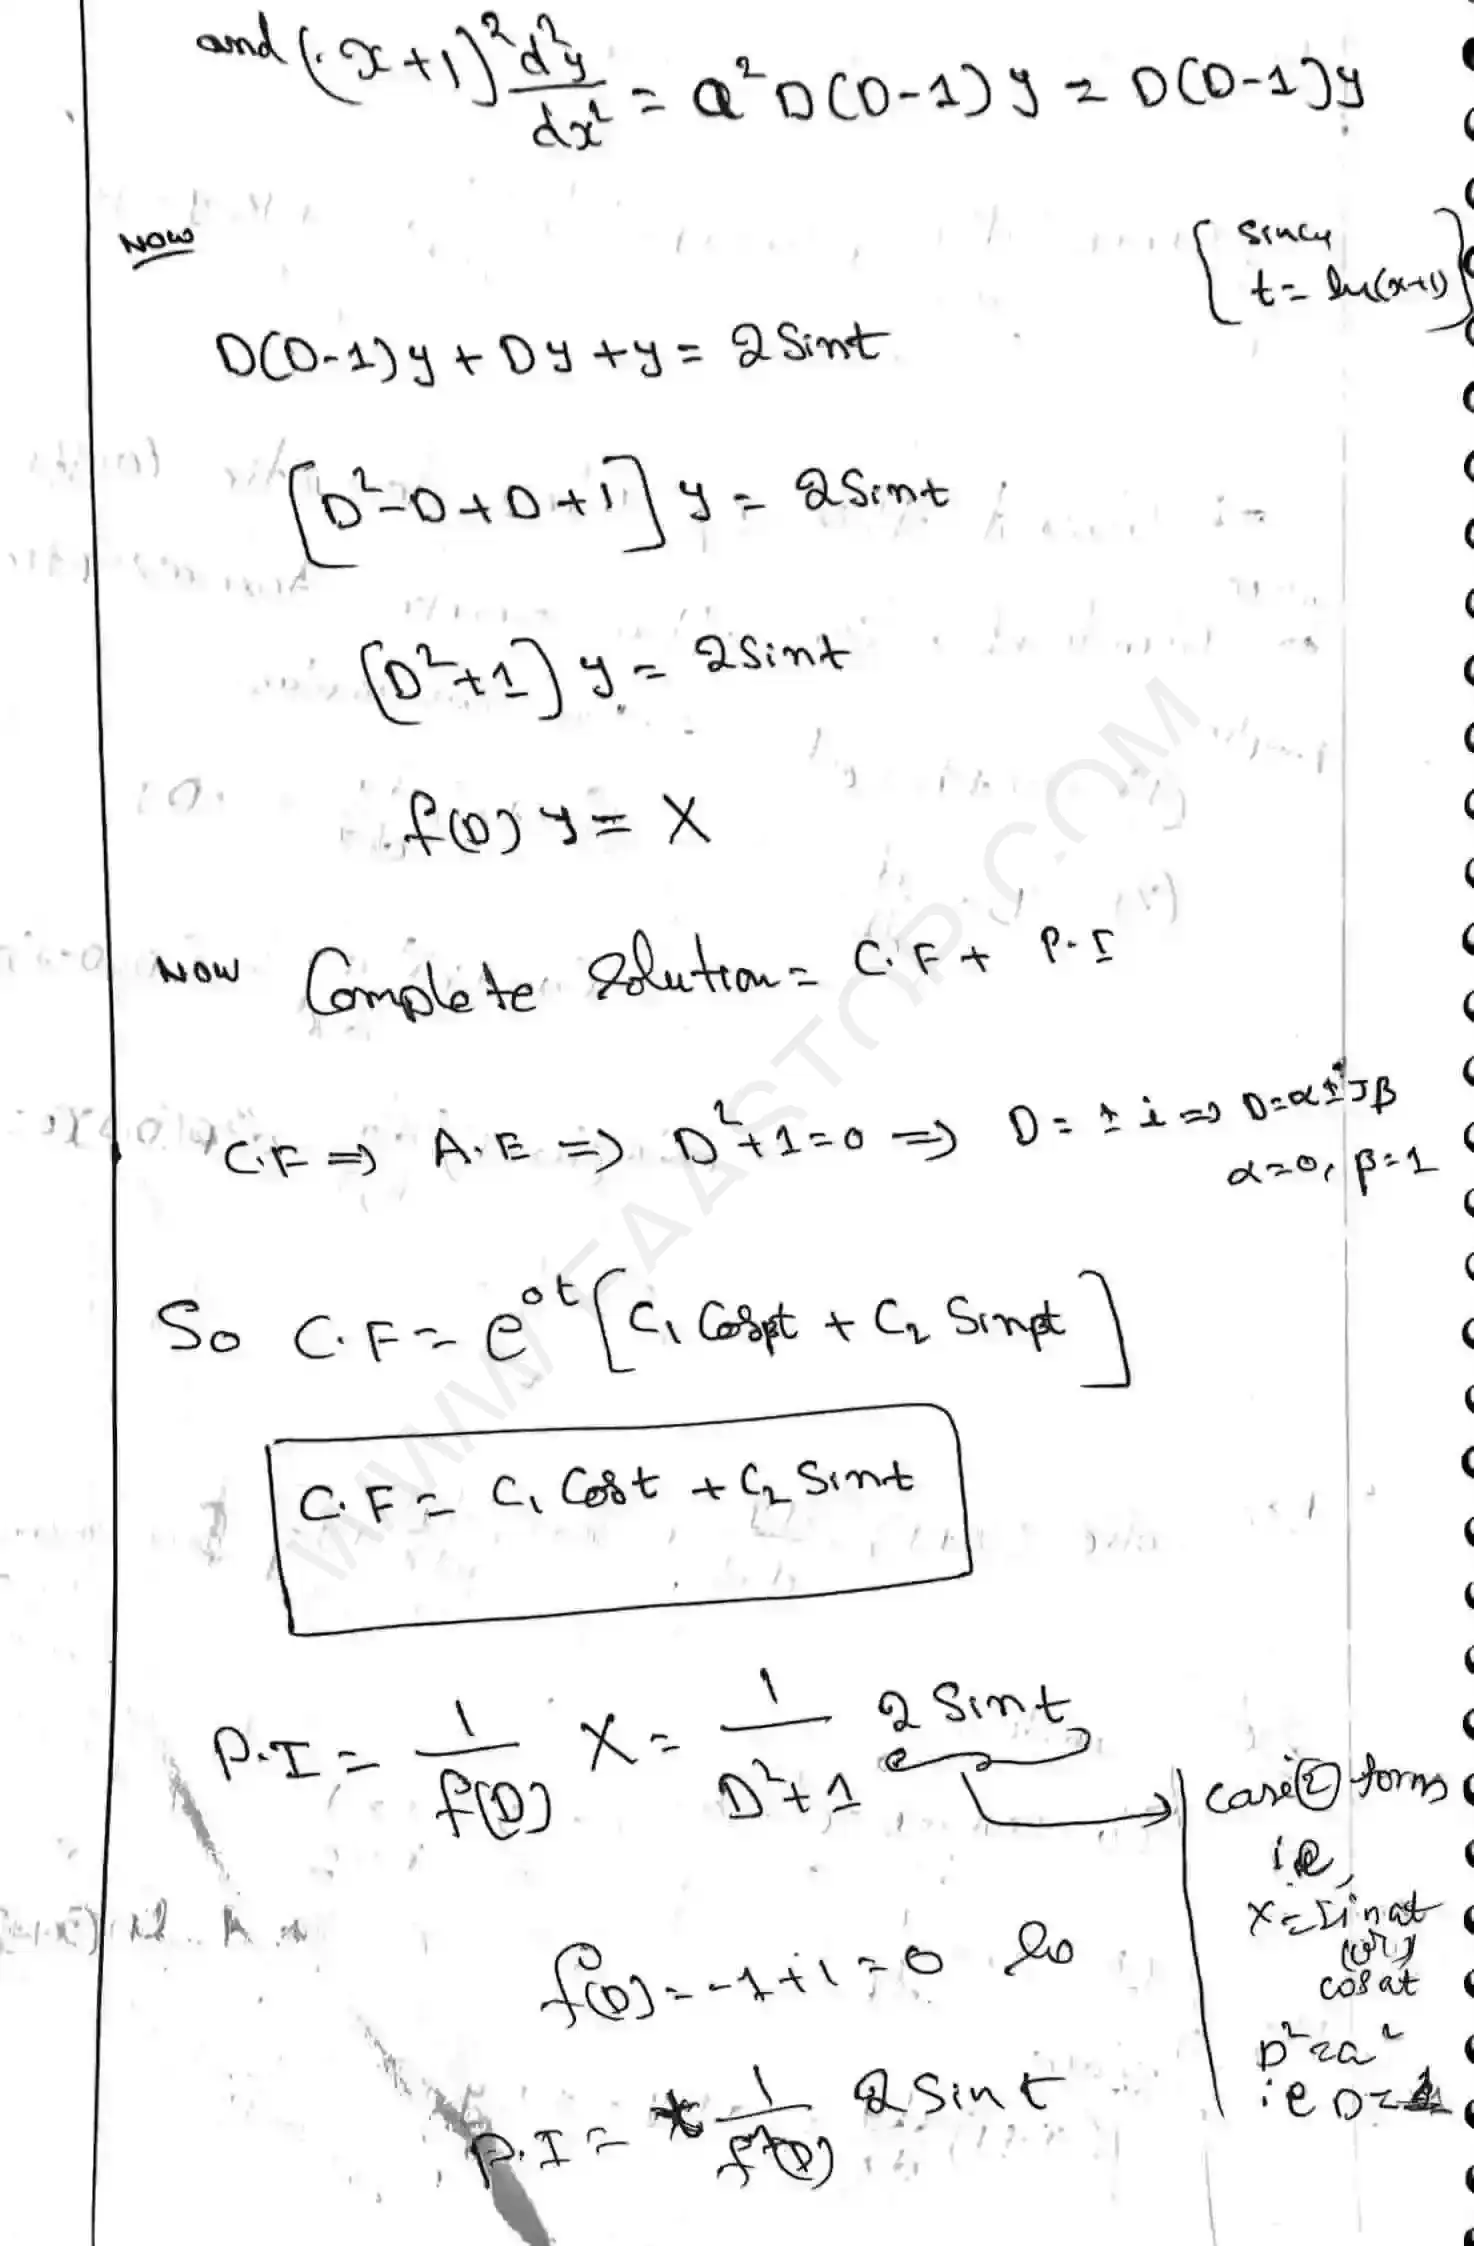 and (x+1)² d²y/dx² = a² D(D-1) y = D(D-1)y
NOW
{ since
t = ln(x+1) }
D(D-1)y + Dy + y = 2 Sint
[D²-D+D+1] y = 2Sint
(D²+1) y = 2Sint
f(D) y = X
NOW Complete Solution = C.F + P.I
C.F ⇒ A.E ⇒ D²+1=0 ⇒ D = ± i ⇒ D=α±Jβ
α=0, β=1
So C.F = e^{0t} [C₁ Cosβt + C₂ Sinβt]
C.F = C₁ Cost + C₂ Sint
P.I = 1/f(D) X = 1/(D²+1) 2 Sint
case ② form
ie,
X = Sinat
(or)
cosat
D²=a²
ie D=
f(D) = -1+1 = 0 So
P.I = t 1/f'(D) 2 Sint
WWW.FAASTOP.COM